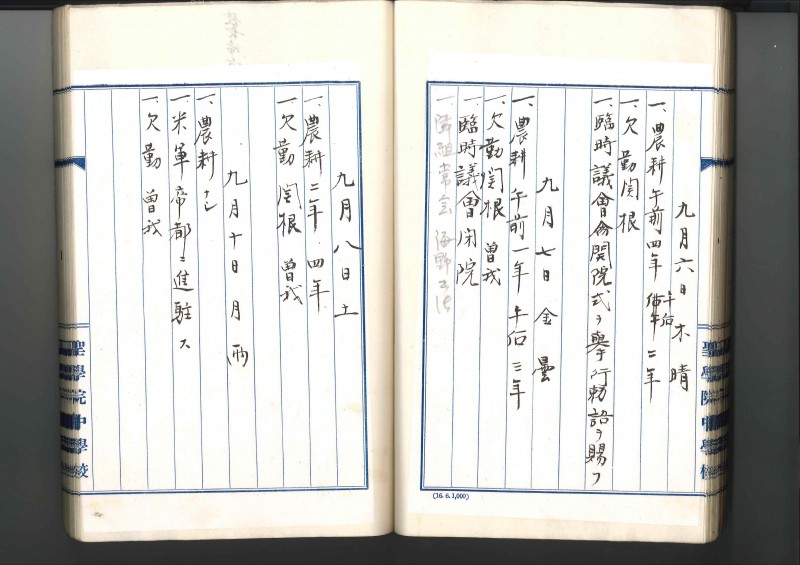 九月六日 木 晴
一、農耕 午前四年 午后二年
一、欠勤 関根
一、臨時議會 開院式ヲ擧行 勅語ヲ賜フ
九月七日 金 曇
一、農耕 午前一年 午后三年
一、欠勤 関根 曽我
一、臨時議會閉院
一、隣組常会
(16. 6. 1,000)
九月八日 土
一、農耕 三年 四年
一、欠勤 関根 曽我
九月十日 月 雨
一、農耕ナシ
一、米軍帝都ニ進駐ス
一、欠勤 曽我
聖學院中學校
聖學院中學校